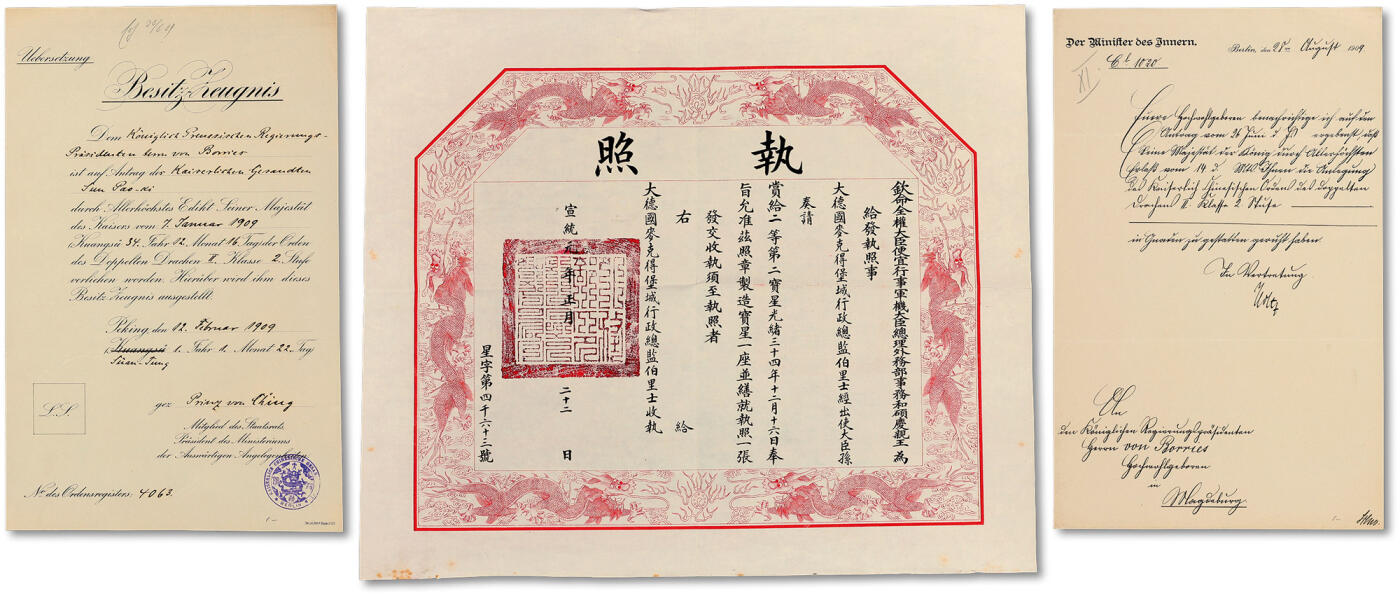 22/09
Uebersetzung
Besitz-Zeugnis
Dem Königlich Preussischen Regierungs-
Präsidenten Herrn von Borries
ist auf Antrag des Kaiserlichen Gesandten
Sun Pao-ki
durch Allerhöchstes Edikt Seiner Majestät
des Kaisers vom 7. Januar 1909
(Kuangsü 34. Jahr 12. Monat 16. Tag) der Orden
des Doppelten Drachen II. Klasse 2. Stufe
verliehen worden. Hierüber wird ihm dieses
Besitz-Zeugnis ausgestellt.
Peking, den 12. Februar 1909
(Kuangsü 1. Jahr 1. Monat 22. Tag)
Süan-Tung
L.S.
gez. Prinz von Ching
Mitglied des Staatsrats
Präsident des Ministeriums
der Auswärtigen Angelegenheiten
BERLIN
No des Ordensregisters: 4063.
執照
欽命全權大臣便宜行事軍機大臣總理外務部事務和碩慶親王 為
給發執照事
大德國麥克得堡城行政總監伯里士經出使大臣孫
奏請
賞給二等第二寶星光緒三十四年十二月十六日奉
旨允准茲照章製造寶星一座並繕就執照一張
發交收執須至執照者
右 給
大德國麥克得堡城行政總監伯里士收執
宣統元年正月 二十二 日
星字第四千六十三號
Der Minister des Innern.
Berlin, den 25ten August 1909.
C. b 1020
XI.
Euere Hochwohlgeboren benachrichtige ich auf den
Antrag vom 26. Juni d. Js. ergebenst, daß
Seine Majestät der König durch Allerhöchsten
Erlaß vom 14. d. Mts. Ihnen die Anlegung
des Kaiserlich Chinesischen Ordens des doppelten
Drachens II. Klasse 2. Stufe
in Gnaden zu gestatten geruht haben.
In Vertretung.
Holtz
An
den Königlichen Regierungspräsidenten
Herrn von Borries
Hochwohlgeboren
in
Magdeburg.